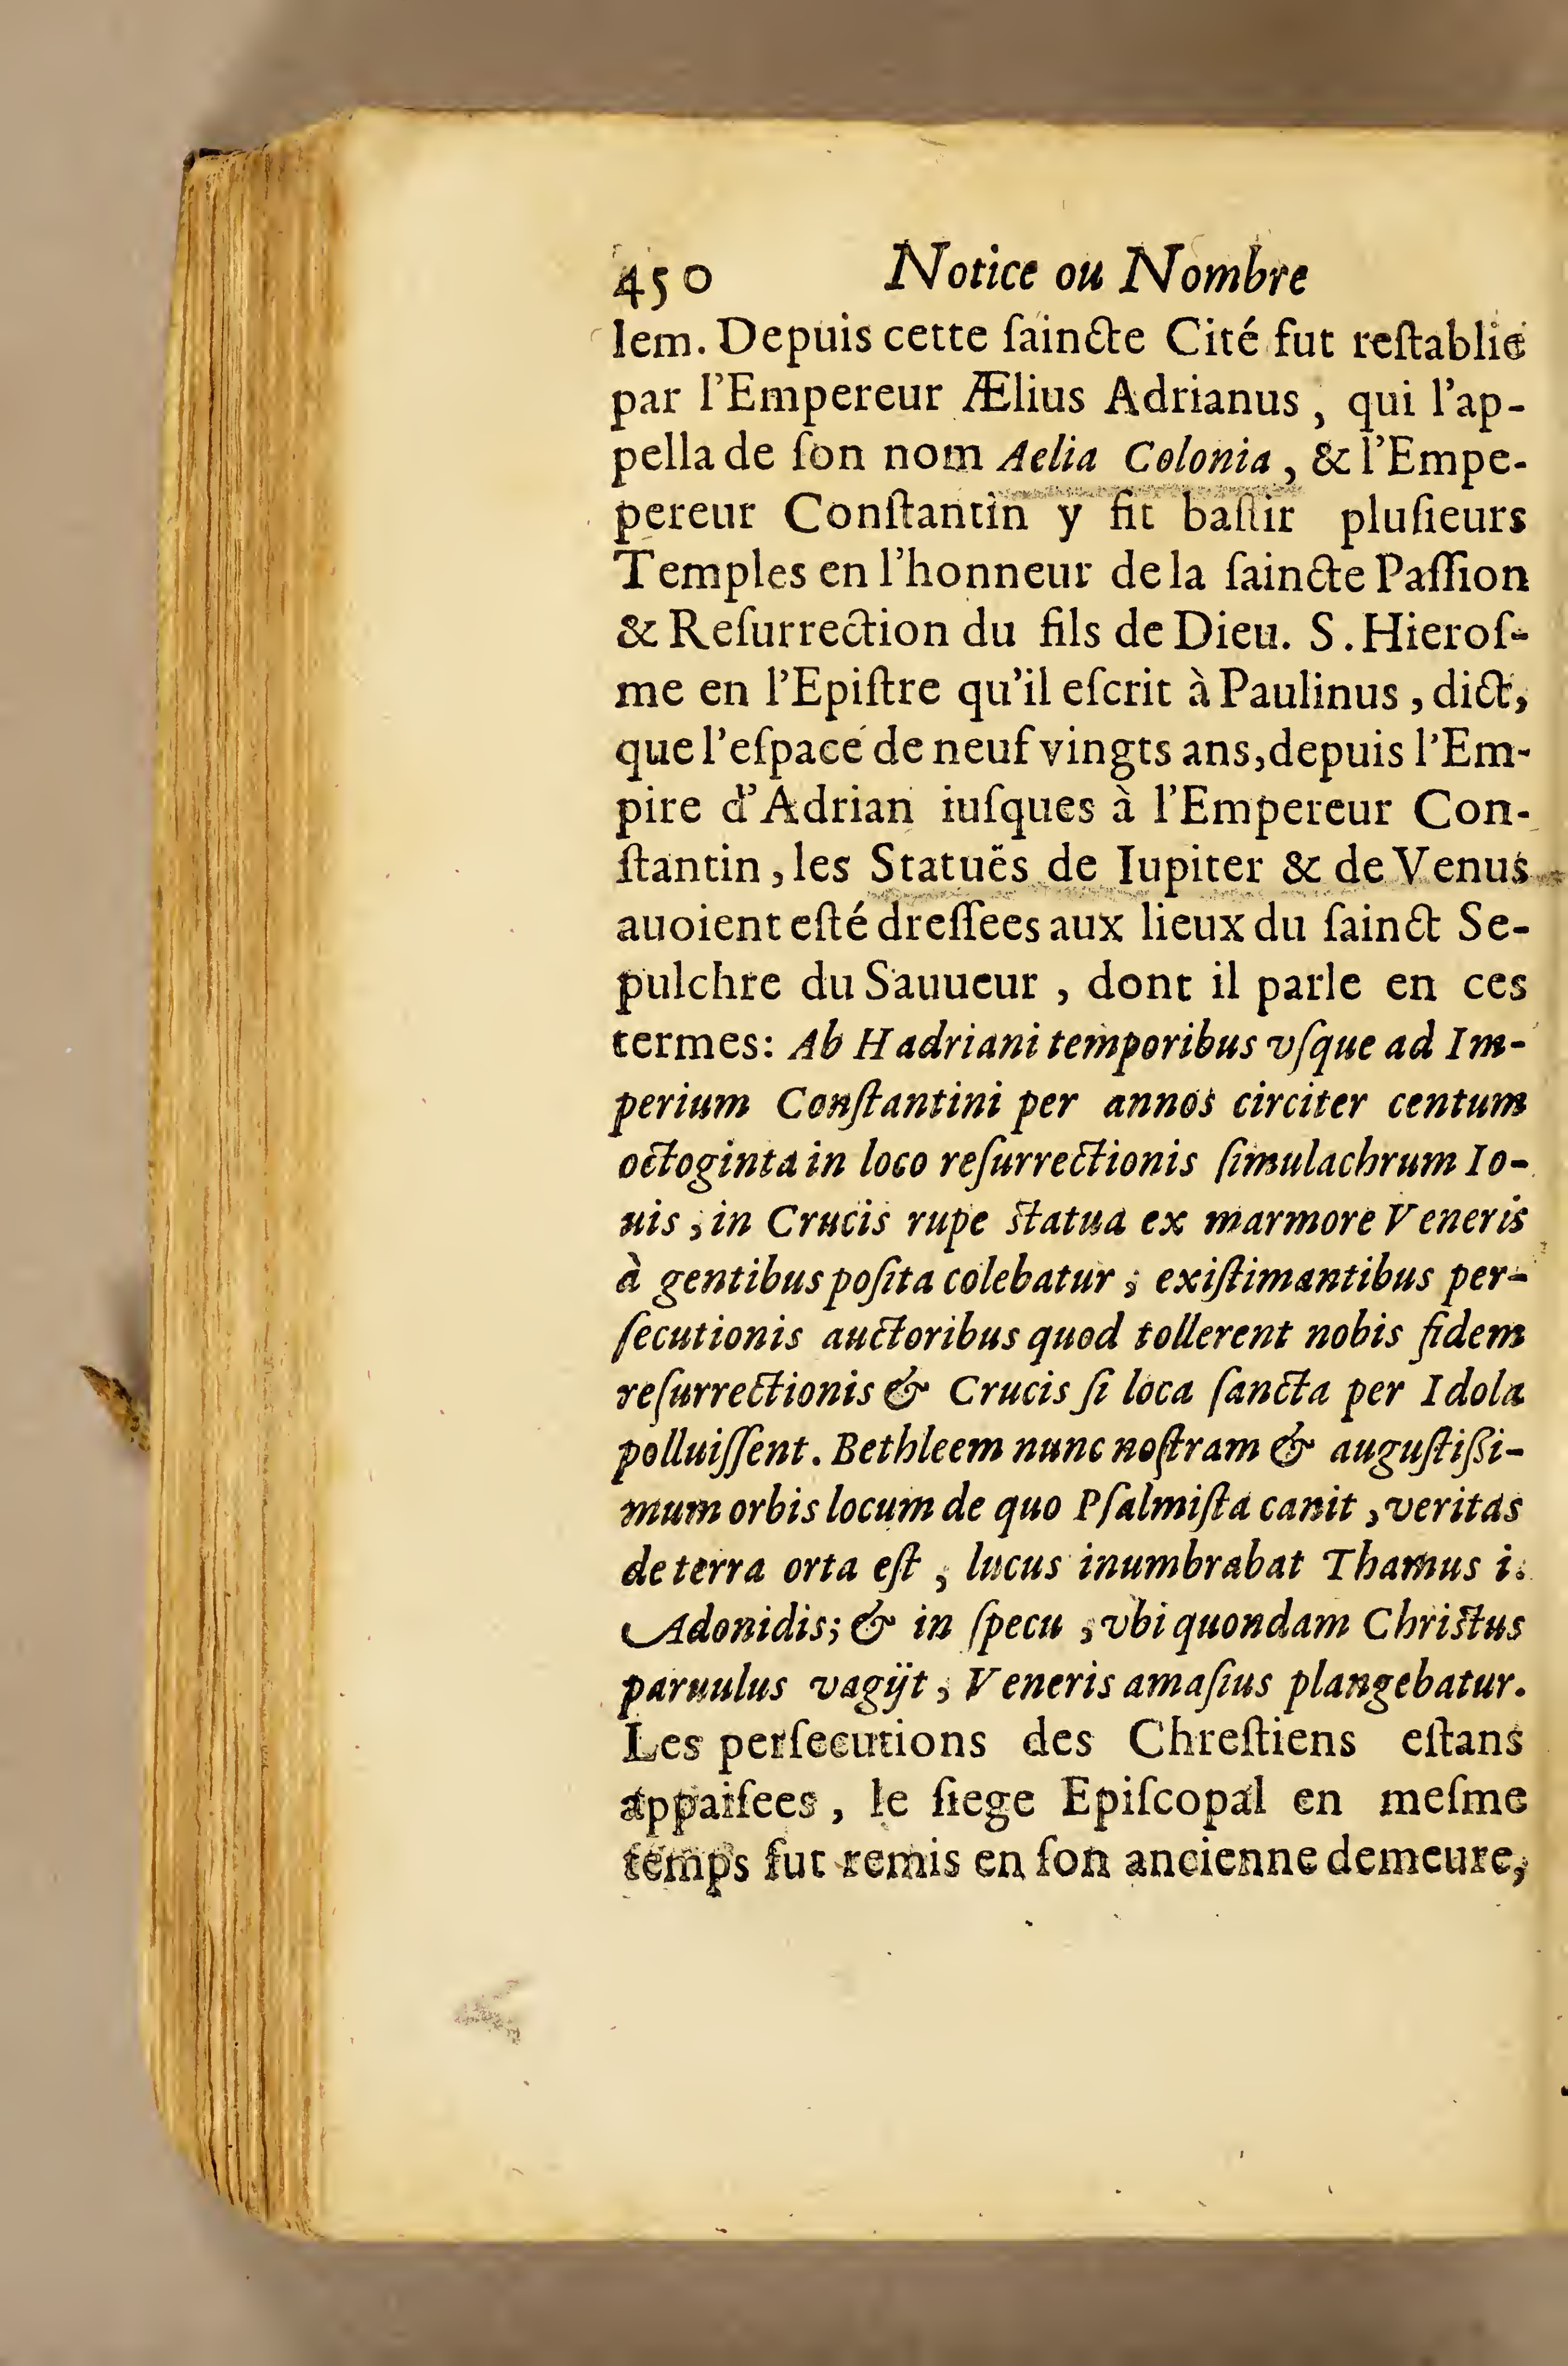 450 Notice ou Nombre
lem. Depuis cette ſaincte Cité fut reſtablie
par l'Empereur Ælius Adrianus, qui l'ap-
pella de ſon nom Aelia Colonia, & l'Empe-
pereur Conſtantin y fit baſtir pluſieurs
Temples en l'honneur de la ſaincte Paſſion
& Reſurrection du fils de Dieu. S. Hieroſ-
me en l'Epiſtre qu'il eſcrit à Paulinus, dict,
que l'eſpace de neuf vingts ans, depuis l'Em-
pire d'Adrian iuſques à l'Empereur Con-
ſtantin, les Statuës de Iupiter & de Venus
auoient eſté dreſſees aux lieux du ſainct Se-
pulchre du Sauueur, dont il parle en ces
termes: Ab Hadriani temporibus vſque ad Im-
perium Conſtantini per annos circiter centum
octoginta in loco reſurrectionis ſimulachrum Io-
uis, in Crucis rupe ſtatua ex marmore Veneris
à gentibus poſita colebatur; exiſtimantibus per-
ſecutionis auctoribus quod tollerent nobis fidem
reſurrectionis & Crucis ſi loca ſancta per Idola
polluiſſent. Bethleem nunc noſtram & auguſtiſsi-
mum orbis locum de quo Pſalmiſta canit, veritas
de terra orta eſt, lucus inumbrabat Thamus i.
Adonidis; & in ſpecu, vbi quondam Chriſtus
paruulus vagijt, Veneris amaſius plangebatur.
Les perſecutions des Chreſtiens eſtans
appaiſees, le ſiege Epiſcopal en meſme
temps fut remis en ſon ancienne demeure,